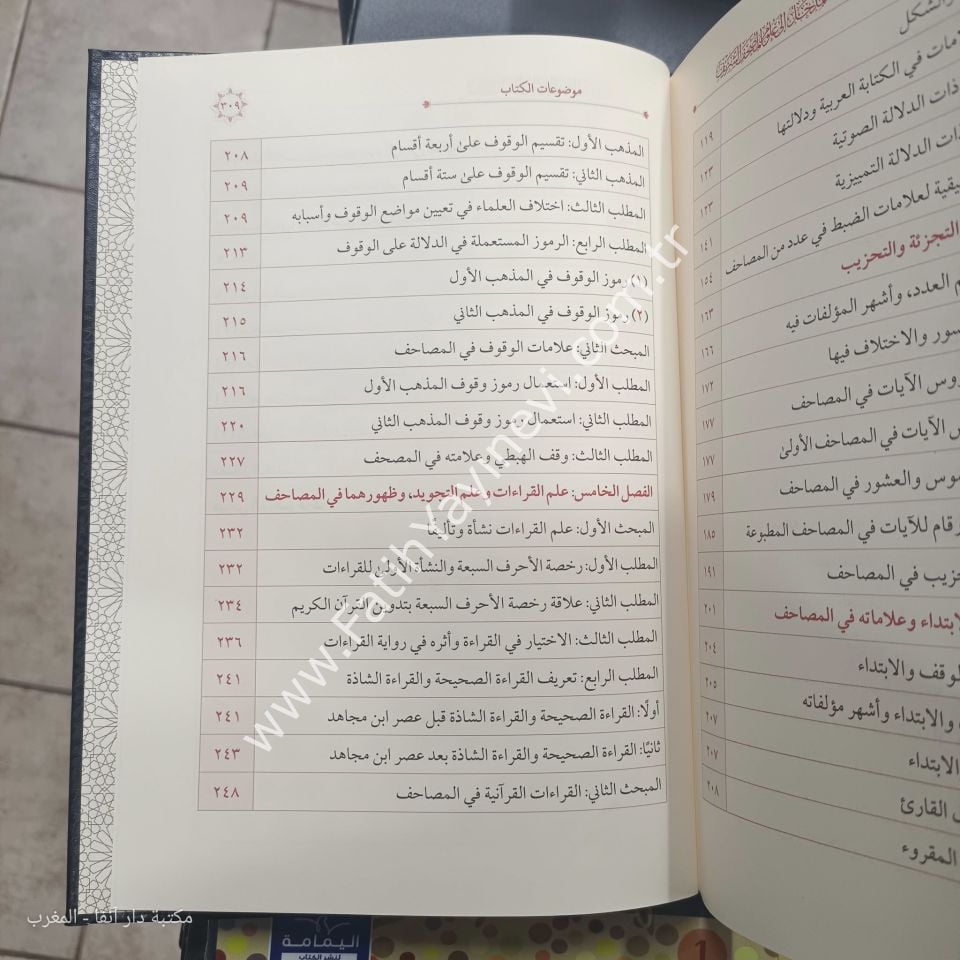 موضوعات الكتاب
٣٠٩
المذهب الأول: تقسيم الوقوف على أربعة أقسام ٢٠٨
المذهب الثاني: تقسيم الوقوف على ستة أقسام ٢٠٩
المطلب الثالث: اختلاف العلماء في تعيين مواضع الوقوف وأسبابه ٢٠٩
المطلب الرابع: الرموز المستعملة في الدلالة على الوقوف ٢١٣
(١) رموز الوقوف في المذهب الأول ٢١٤
(٢) رموز الوقوف في المذهب الثاني ٢١٥
المبحث الثاني: علامات الوقوف في المصاحف ٢١٦
المطلب الأول: استعمال رموز وقوف المذهب الأول ٢١٦
المطلب الثاني: استعمال رموز وقوف المذهب الثاني ٢٢٠
المطلب الثالث: وقف الهبطي وعلامته في المصحف ٢٢٧
الفصل الخامس: علم القراءات وعلم التجويد، وظهورهما في المصاحف ٢٢٩
المبحث الأول: علم القراءات نشأة وتأليفًا ٢٣٢
المطلب الأول: رخصة الأحرف السبعة والنشأة الأولى للقراءات ٢٣٢
المطلب الثاني: علاقة رخصة الأحرف السبعة بتدوين القرآن الكريم ٢٣٤
المطلب الثالث: الاختيار في القراءة وأثره في رواية القراءات ٢٣٦
المطلب الرابع: تعريف القراءة الصحيحة والقراءة الشاذة ٢٤١
أولًا: القراءة الصحيحة والقراءة الشاذة قبل عصر ابن مجاهد ٢٤١
ثانيًا: القراءة الصحيحة والقراءة الشاذة بعد عصر ابن مجاهد ٢٤٣
المبحث الثاني: القراءات القرآنية في المصاحف ٢٤٨
والشكل
في الكتابة العربية ودلالتها ١١٩
ذات الدلالة الصوتية ١٢٣
ذات الدلالة التمييزية ١٢٣
لعلامات الضبط في عدد من المصاحف ١٤١
التجزئة والتحزيب ١٥٤
العدد، وأشهر المؤلفات فيه ١٦٣
والاختلاف فيها ١٦٦
الآيات في المصاحف ١٧٢
الآيات في المصاحف الأولى ١٧٧
١٧٧
والعشور في المصاحف ١٧٩
للآيات في المصاحف المطبوعة ١٨٥
في المصاحف ١٩١
وعلاماته في المصاحف ٢٠١
والابتداء ٢٠٤
٢٠٥
والابتداء وأشهر مؤلفاته ٢٠٧
الابتداء ٢٠٧
القارئ ٢٠٨
المقروء
www.FatihYayinevi.com.tr
مكتبة دار آنفا - المغرب
اليمامة
1